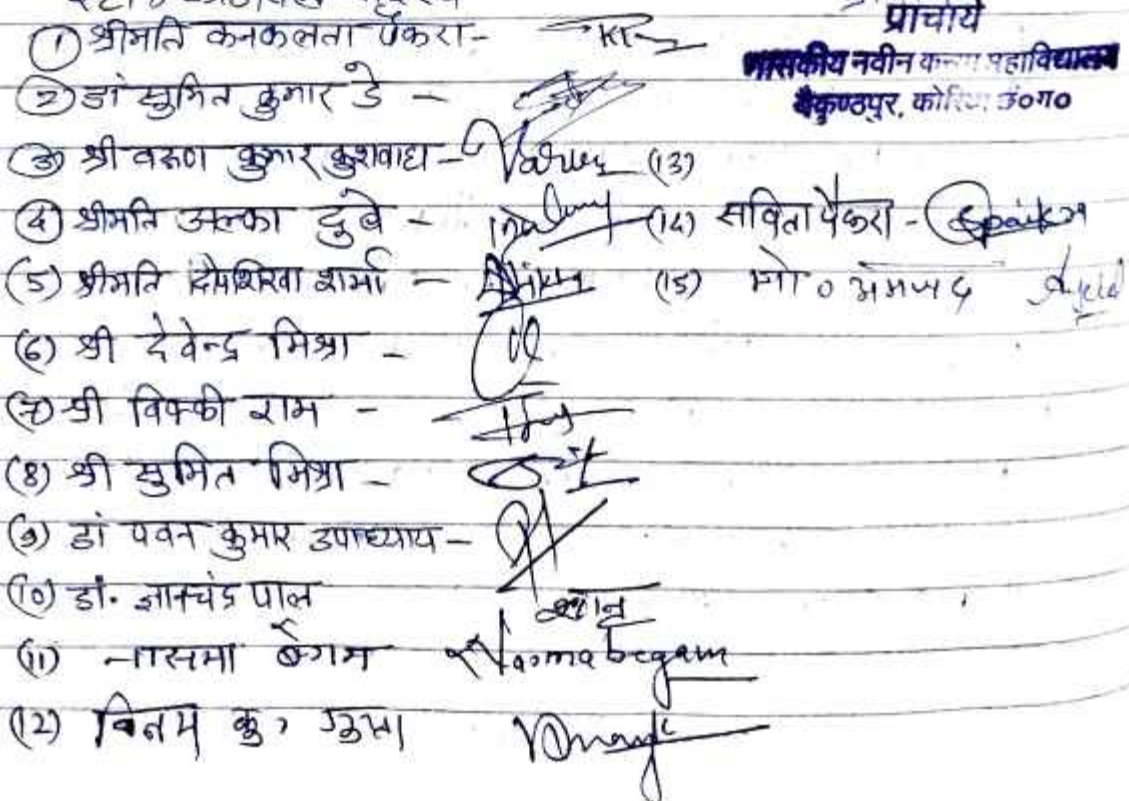 प्राचार्य
शासकीय नवीन कन्या महाविद्यालय
बैकुण्ठपुर, कोरिया छ०ग०
(1) श्रीमति कनकलता पैकरा-
(2) डां सुमित कुमार डे -
(3) श्री वरूण कुमार कुशवाहा - Varun
(4) श्रीमति अल्का दुबे -
(5) श्रीमति दीपशिखा शर्मा -
(6) श्री देवेन्द्र मिश्रा -
(7) श्री विक्की राम -
(8) श्री सुमित मिश्रा -
(9) डां पवन कुमार उपाध्याय -
(10) डां. ज्ञानचंद्र पाल
(11) नासमा बेगम Naomabegam
(12) विनय कु. गुप्ता
(13)
(14) सविता पैकरा -
(15) मो० अमजद